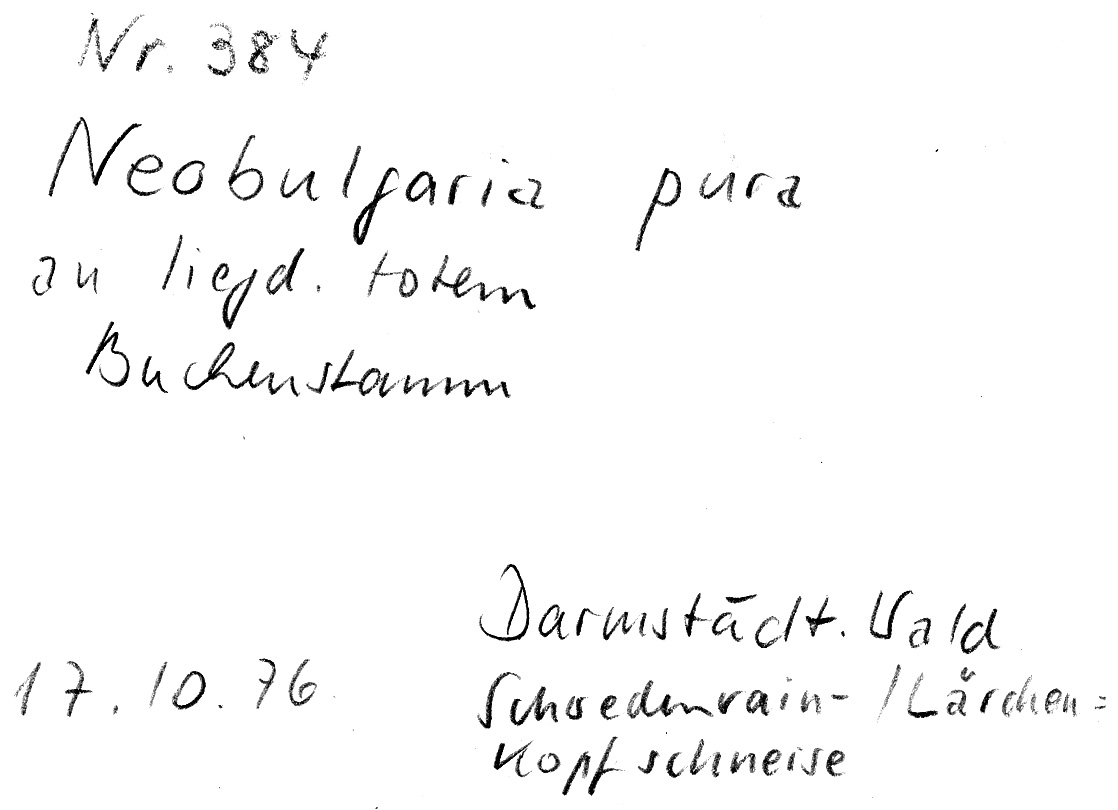 Nr. 384
Neobulgaria pura
an liegd. totem
Buchenstamm
Darmstädt. Wald
17.10.76
Schwedenrain- / Lärchen=
Kopfschneise